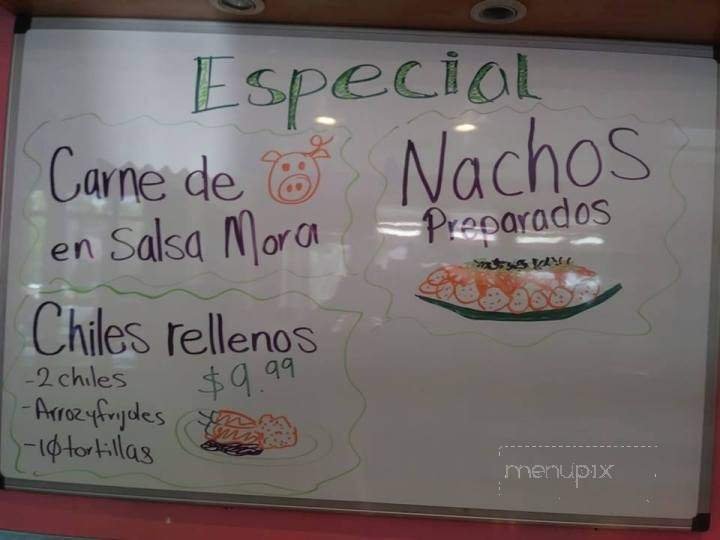 Especial
Carne de
en Salsa Mora
Nachos
Preparados
Chiles rellenos
-2 chiles
$9.99
-Arroz y frijoles
-10 tortillas
menupix